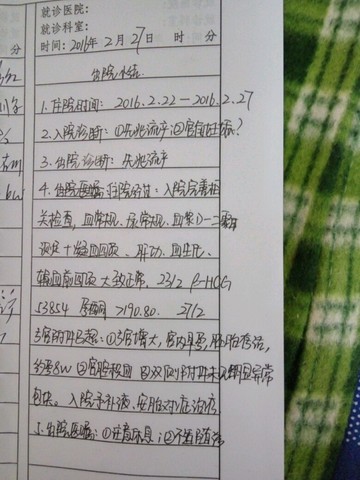 就诊医院:
就诊科室:
时间: 2016年 2月 27日 时 分
分
出院小结
1. 住院时间: 2016.2.22—2016.2.27
2. 入院诊断: ①先兆流产;②宫颈妊娠?
3. 出院诊断: 先兆流产
4. 住院经过: 入院完善相
关检查, 血常规、尿常规、血浆D-二聚体
测定+凝血四项、肝功、血生化、
输血前四项大致正常, 23/2 β-HCG
53854 孕酮 >190.80. 27/2
宫附件B超: ①子宫增大, 宫内早孕, 胚胎存活,
约孕8W ②宫腔积血 ③双侧附件未见明显异常
包块。入院予补液、安胎对症治疗
5. 出院医嘱: ①注意休息; ②不适随诊